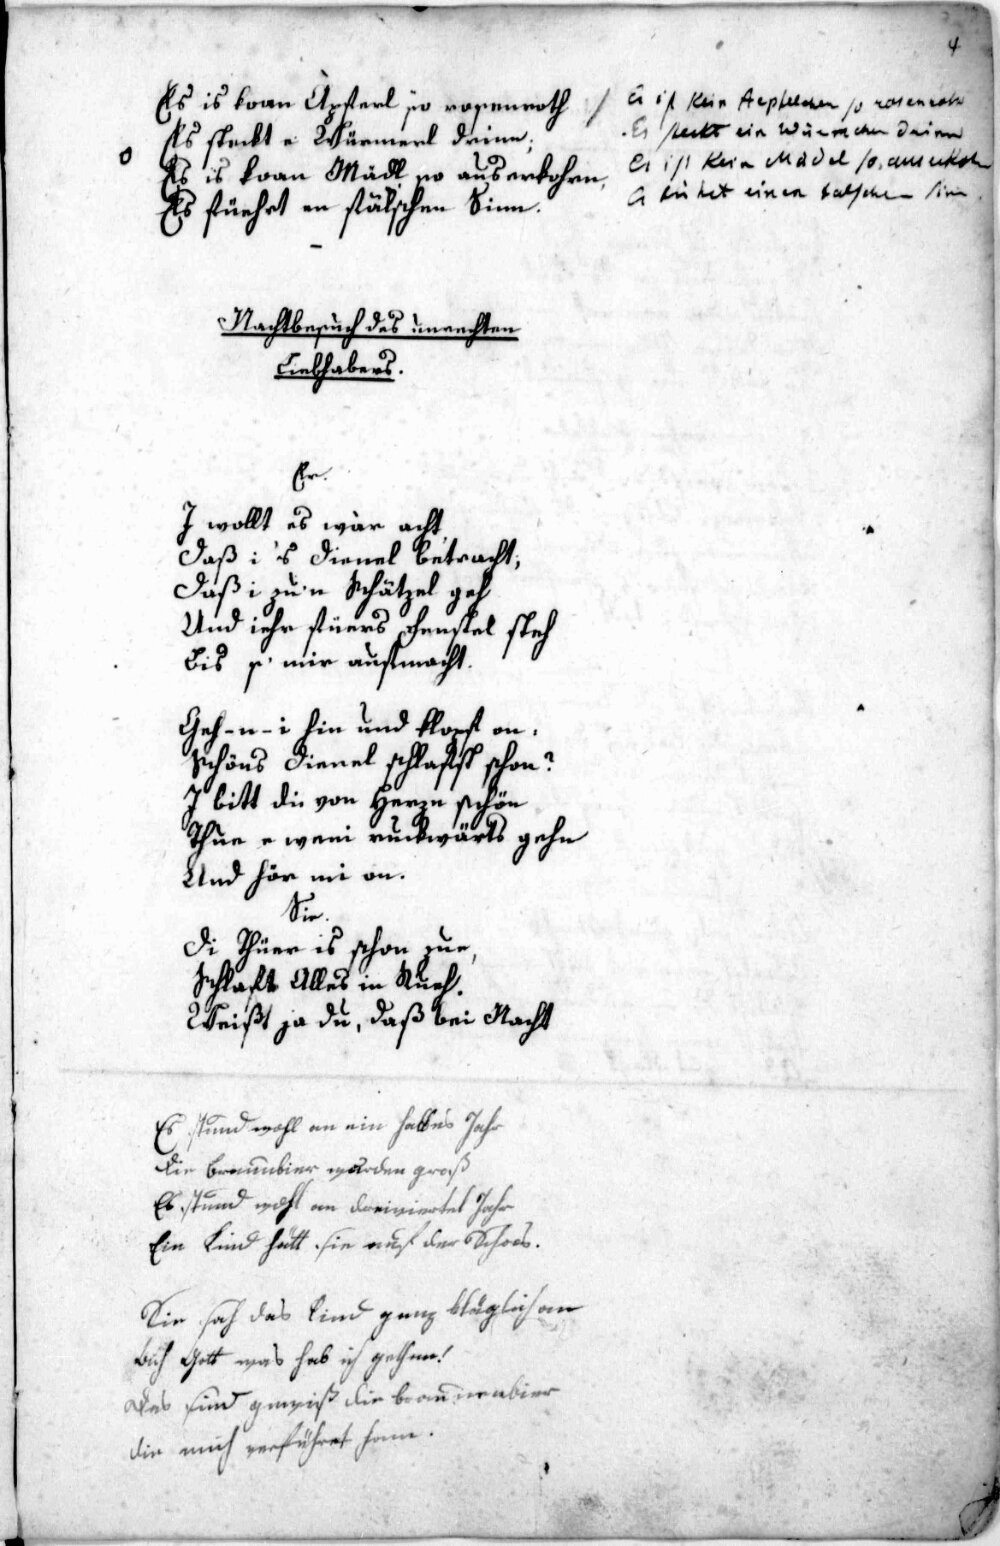 4
Es is koan Äpferl so rosenroth /
Es steckt e Würmerl drinn;
o Es is koan Mädl so auserkohrn,
Es füehrt en fälschen Sinn.
Es ist kein Aepfelchen so rosenroth
Es steckt ein Würmchen drinn
Es ist kein Mädel so auserkohrn
Es führet einen falschen Sinn.
Nachtbesuch des unrechten
Liebhabers.
Er.
I wollt es wär acht,
Daß i 's Dienel betracht;
Daß i zu'n Schätzel geh
Und iehr füers Fenstel steh
Bis s' mir aufmacht.
Geh-n-i hin und klopf on:
Schöns Dienel schlafst schon?
I bitt di von Herzn schön
Thue e weni ruckwärts gehn
Und hör mi on.
Sie.
Di Thüer is schon zue,
Schlaft Alles in Rueh.
Weißt ja du, daß bei Nacht
Es stund wohl an ein halbes Jahr
die braunbier wurden groß
Es stund wohl an dreiviertel Jahr
Ein Kind hatt sie auf der Schoos.
Sie sah das Kind ganz kläglich an
Ach Gott was hab ich gethan!
Das sind gewiß die braunenbier
die mich verführet han.